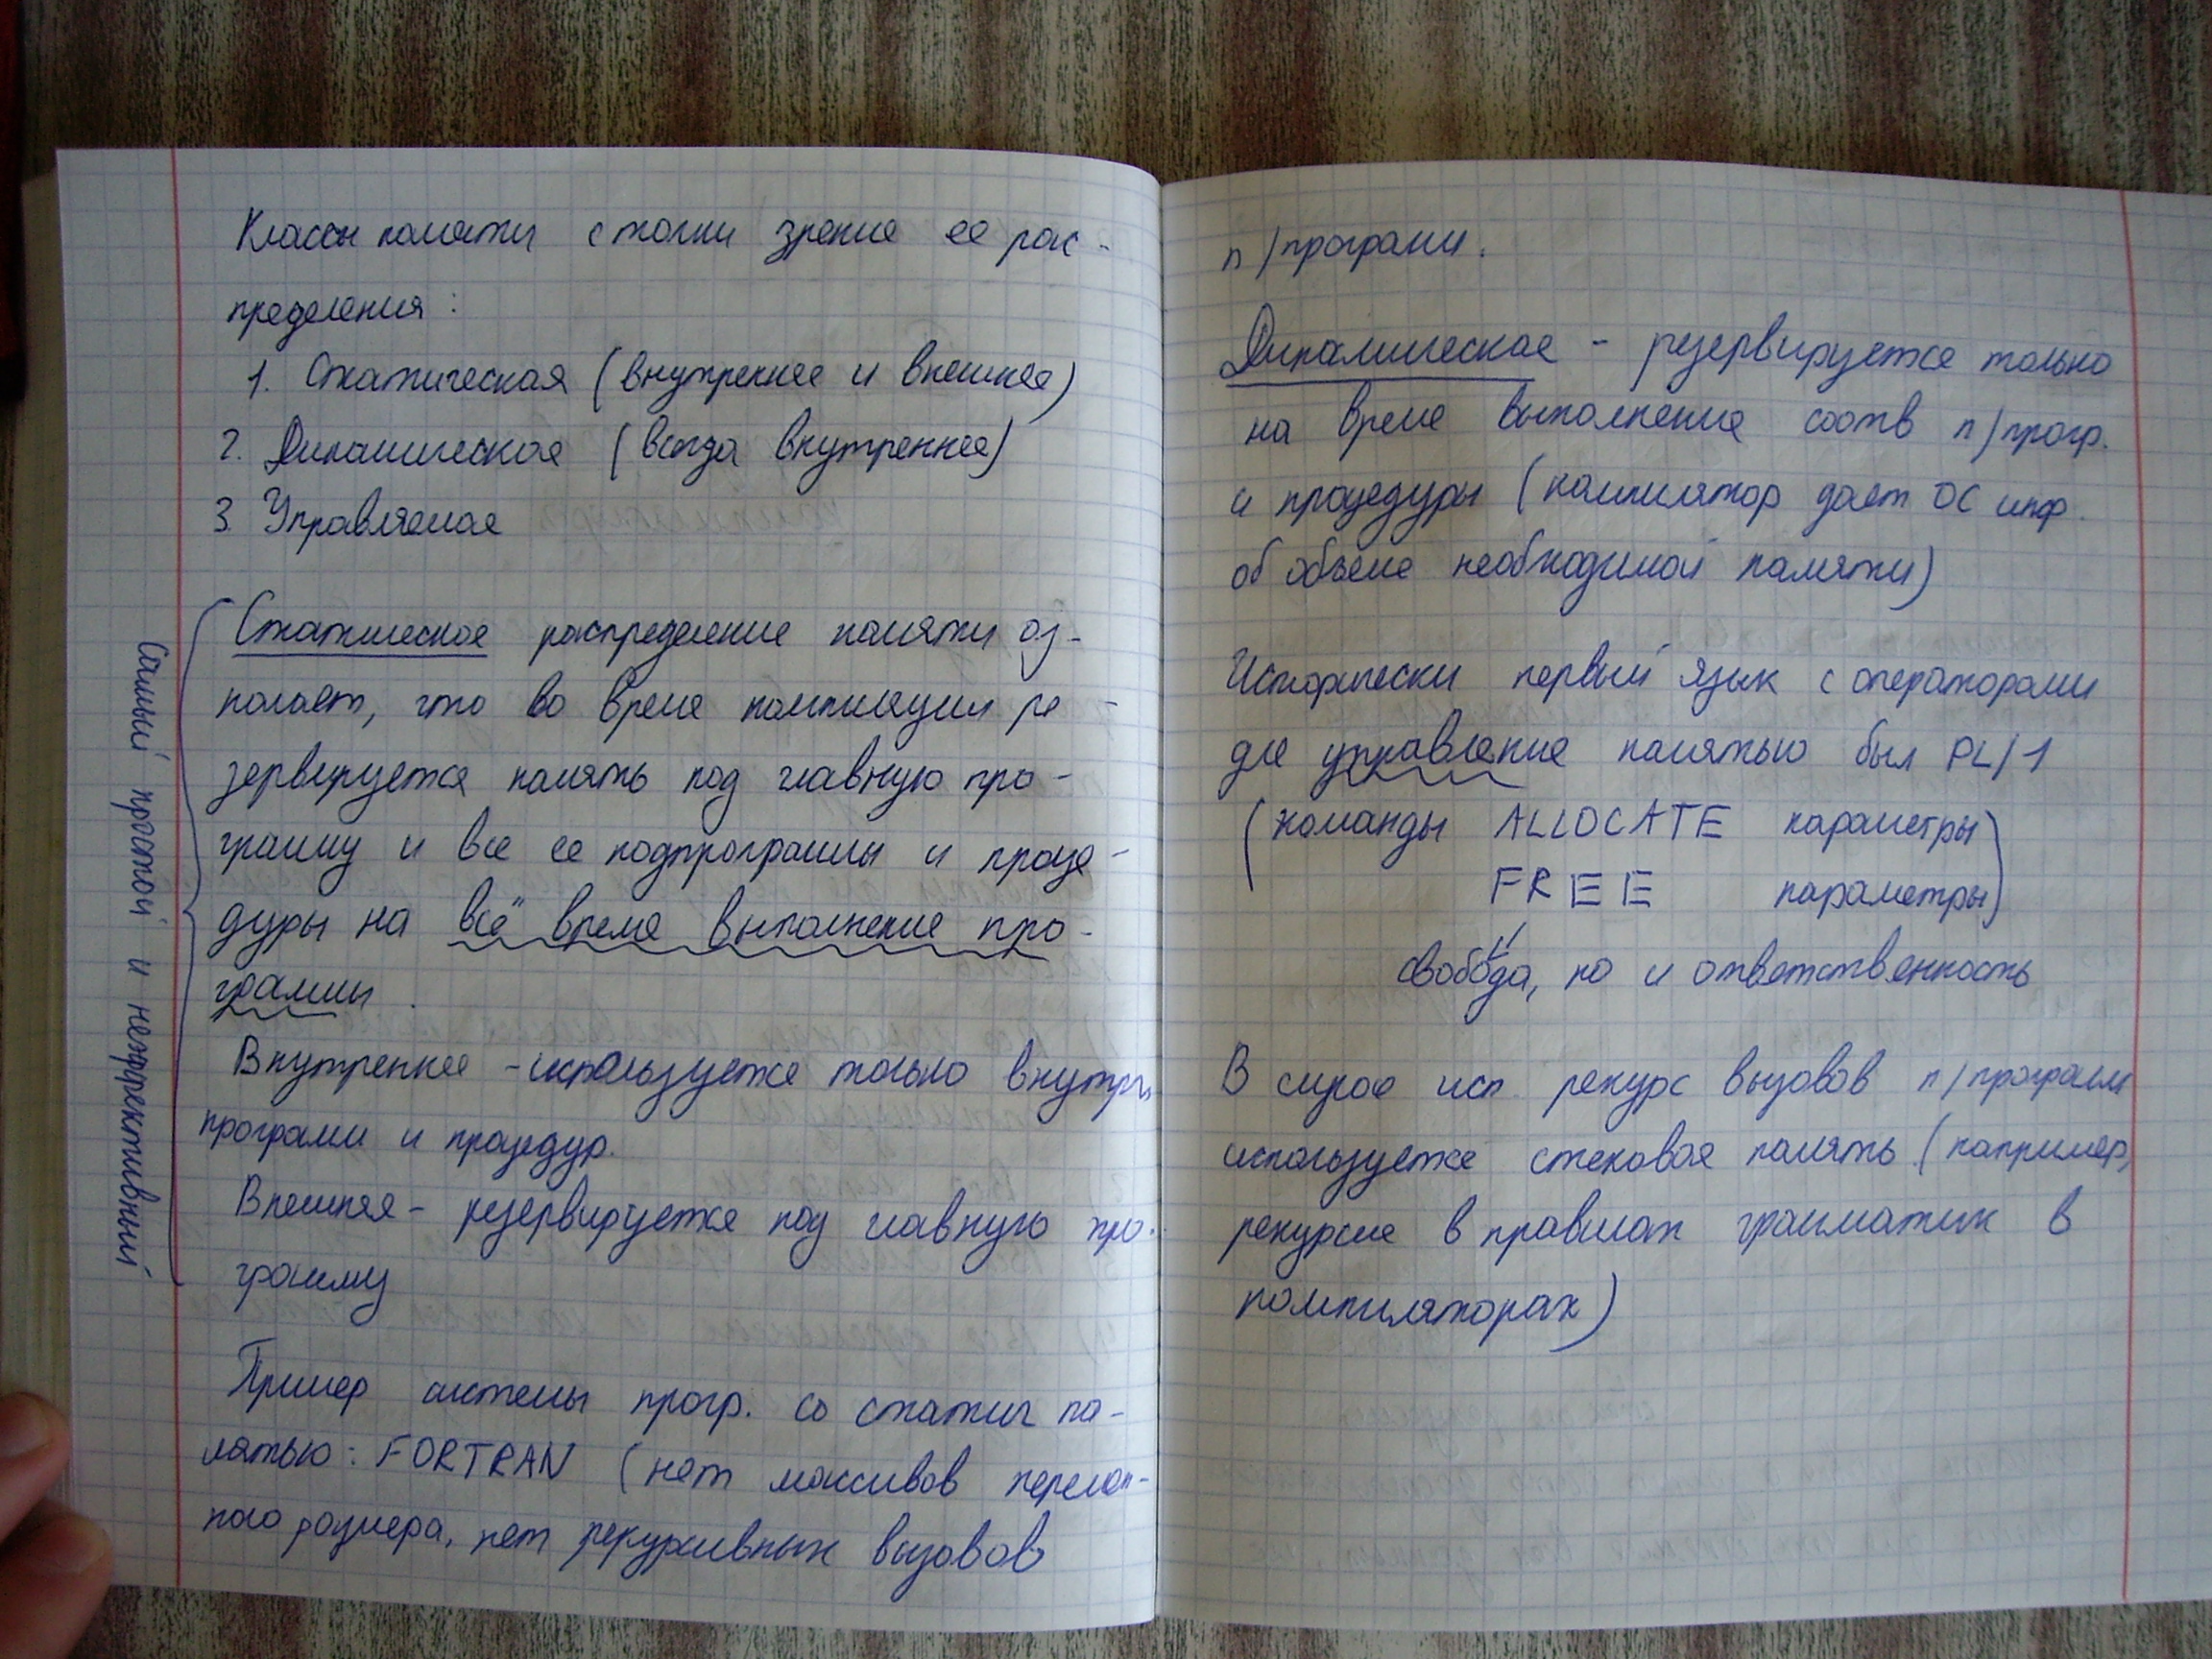 Классы памяти с точки зрения ее рас-
пределения:
1. Статическая (внутреннее и внешнее)
2. Динамическая (всегда внутреннее)
3. Управляемая
Статическое распределение памяти оз-
начает, что во время компиляции ре-
зервируется память под главную про-
грамму и все ее подпрограммы и проце-
дуры на всё время выполнения про-
граммы.
Внутреннее - используется только внутри
программ и процедур.
Внешняя - резервируется под главную про-
грамму
Самый простой и неэффективный
Пример системы прогр. со статич па-
мятью: FORTRAN (нет массивов перемен-
ного размера, нет рекурсивных вызовов
п/програм.
Динамическая - резервируется только
на время выполнения соотв п/прогр.
и процедуры (компилятор дает ОС инф.
об объеме необходимой памяти)
Исторически первый язык с операторами
для управления памятью был PL/1
(команды ALLOCATE параметры
FREE параметры)
свобода, но и ответственность
В случае исп. рекурс вызовов п/програм
используется стековая память (например,
рекурсия в правилах грамматик в
компиляторах)